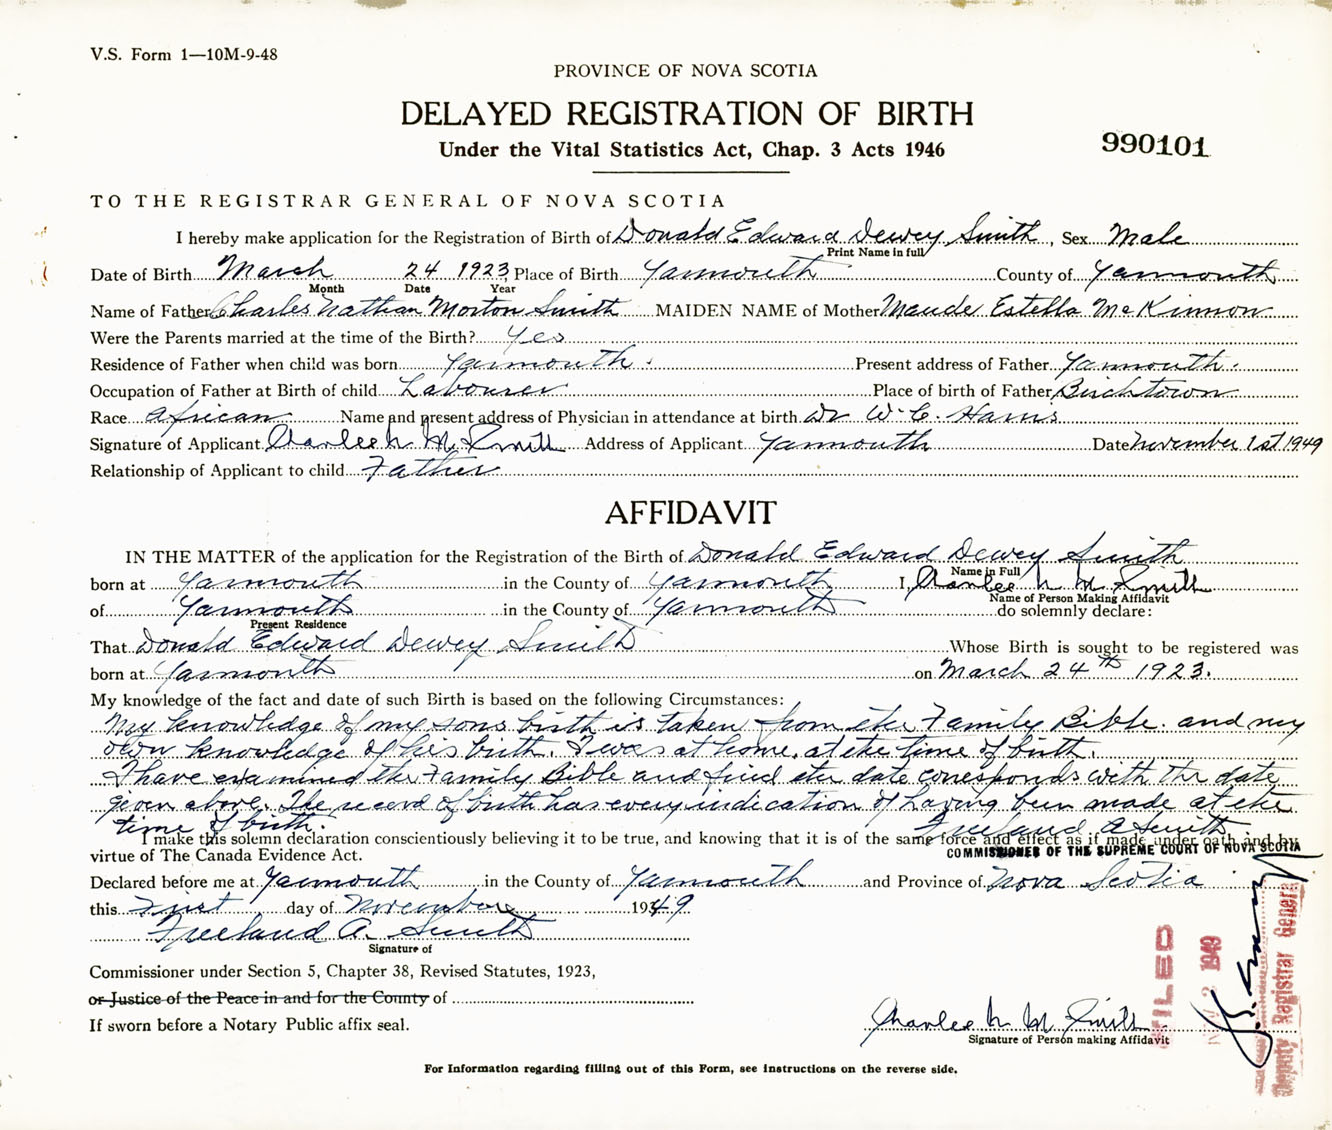 V.S. Form 1—10M-9-48
PROVINCE OF NOVA SCOTIA
DELAYED REGISTRATION OF BIRTH
Under the Vital Statistics Act, Chap. 3 Acts 1946
990101
TO THE REGISTRAR GENERAL OF NOVA SCOTIA
I hereby make application for the Registration of Birth of Donald Edward Dewey Smith, Sex Male
Print Name in full
Date of Birth March 24 1923 Place of Birth Yarmouth County of Yarmouth
Month Date Year
Name of Father Charles Nathan Morton Smith MAIDEN NAME of Mother Maude Estella McKinnon
Were the Parents married at the time of the Birth? Yes
Residence of Father when child was born Yarmouth. Present address of Father Yarmouth.
Occupation of Father at Birth of child Labourer Place of birth of Father Birchtown
Race African Name and present address of Physician in attendance at birth Dr W. C. Harris
Signature of Applicant Charles N M Smith Address of Applicant Yarmouth Date November 1st 1949
Relationship of Applicant to child Father
AFFIDAVIT
IN THE MATTER of the application for the Registration of the Birth of Donald Edward Dewey Smith
Name in Full
born at Yarmouth in the County of Yarmouth I, Charles N M Smith
Name of Person Making Affidavit
of Yarmouth in the County of Yarmouth do solemnly declare:
Present Residence
That Donald Edward Dewey Smith Whose Birth is sought to be registered was
born at Yarmouth on March 24th 1923.
My knowledge of the fact and date of such Birth is based on the following Circumstances:
My knowledge of my sons birth is taken from the Family Bible. and my
own knowledge of his birth. I was at home, at the time of birth.
I have examined the Family Bible and find the date corresponds with the date
given above. The record of birth has every indication of having been made at the
time of birth. Freeland A Smith
I make this solemn declaration conscientiously believing it to be true, and knowing that it is of the same force and effect as if made under oath and by
COMMISSIONER OF THE SUPREME COURT OF NOVA SCOTIA
virtue of The Canada Evidence Act.
Declared before me at Yarmouth in the County of Yarmouth and Province of Nova Scotia
this First day of November 1949
Freeland A. Smith
Signature of
Commissioner under Section 5, Chapter 38, Revised Statutes, 1923,
or Justice of the Peace in and for the County of
If sworn before a Notary Public affix seal.
Charles N M Smith
Signature of Person making Affidavit
For Information regarding filling out of this Form, see instructions on the reverse side.
FILED
1949
Deputy Registrar General